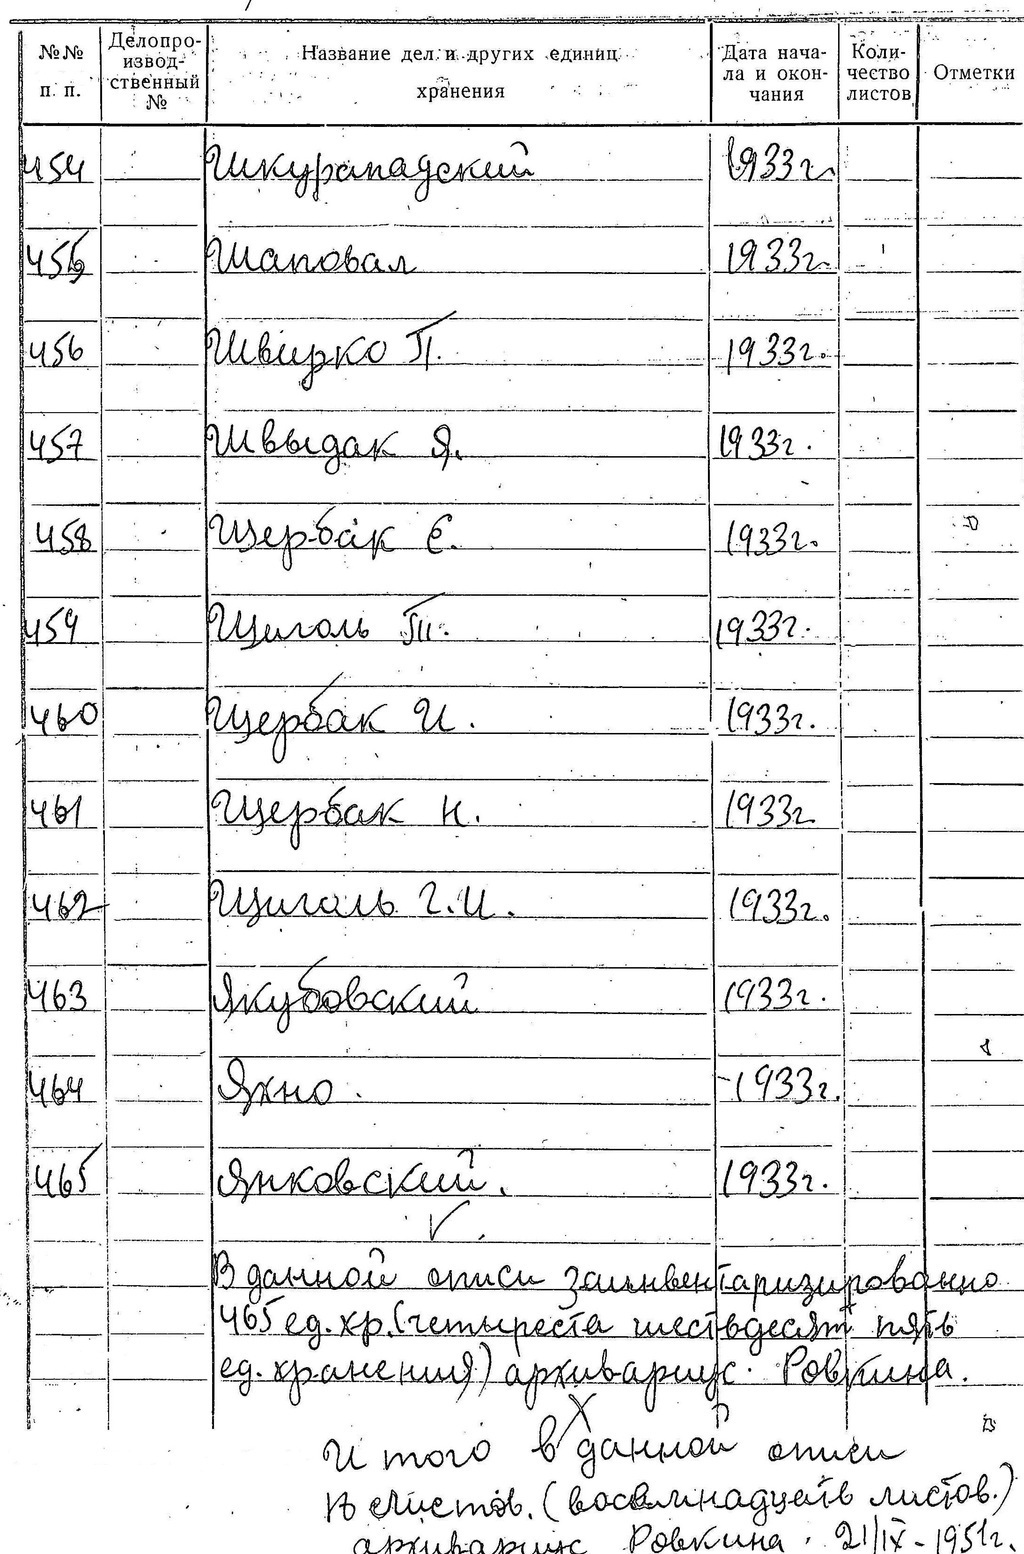 №№ п. п. Делопро-извод-ственный № Название дел и других единиц хранения Дата нача-ла и окон-чания Коли-чество листов Отметки
454 Шкурападский 1933г.
455 Шаповал 1933г.
456 Швирко П. 1933г.
457 Швыдак Я. 1933г.
458 Щербак Е. 1933г.
459 Щиголь П. 1933г.
460 Щербак И. 1933г.
461 Щербак Н. 1933г.
462 Щиголь Г.И. 1933г.
463 Якубовский 1933г.
464 Яхно. 1933г.
465 Янковский. 1933г.
В данной описи заинвентаризированно
465 ед. хр. (четыреста шестьдесят пять
ед. хранения) архивариус. Ровкина.
Итого в данной описи
18 листов. (восемнадцать листов.)
архивариус Ровкина. 21/IX-1951г.